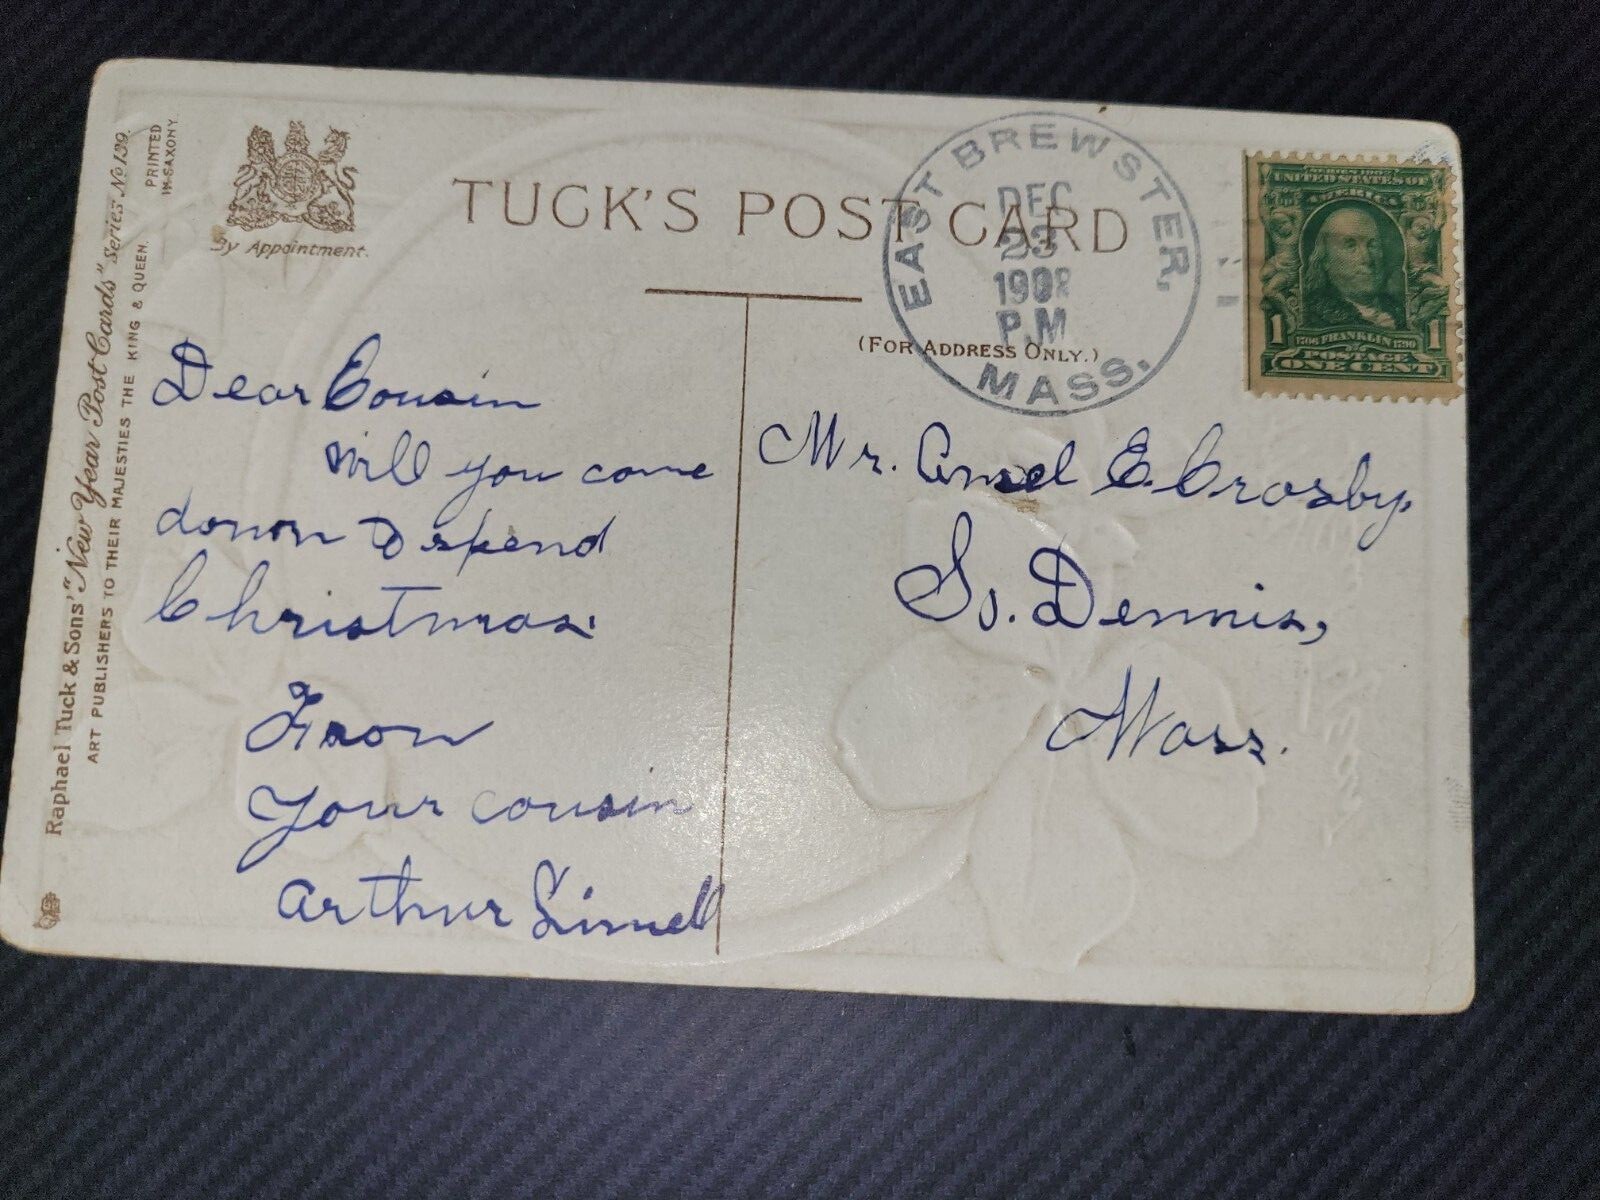 Raphael Tuck & Sons' "New Year Post Cards" Series No. 139.
ART PUBLISHERS TO THEIR MAJESTIES THE KING & QUEEN.
PRINTED
IN SAXONY.
By Appointment.
TUCK'S POST CARD
(FOR ADDRESS ONLY.)
EAST BREWSTER,
DEC
23
1908
P.M
MASS.
SERIES 1902
UNITED STATES OF
AMERICA
1 1706 FRANKLIN 1790 1
POSTAGE
ONE CENT
Dear Cousin
will you come
down to spend
Christmas.
From
Your cousin
Arthur Linnell
Mr. Ansel E. Crosby,
So. Dennis,
Mass.